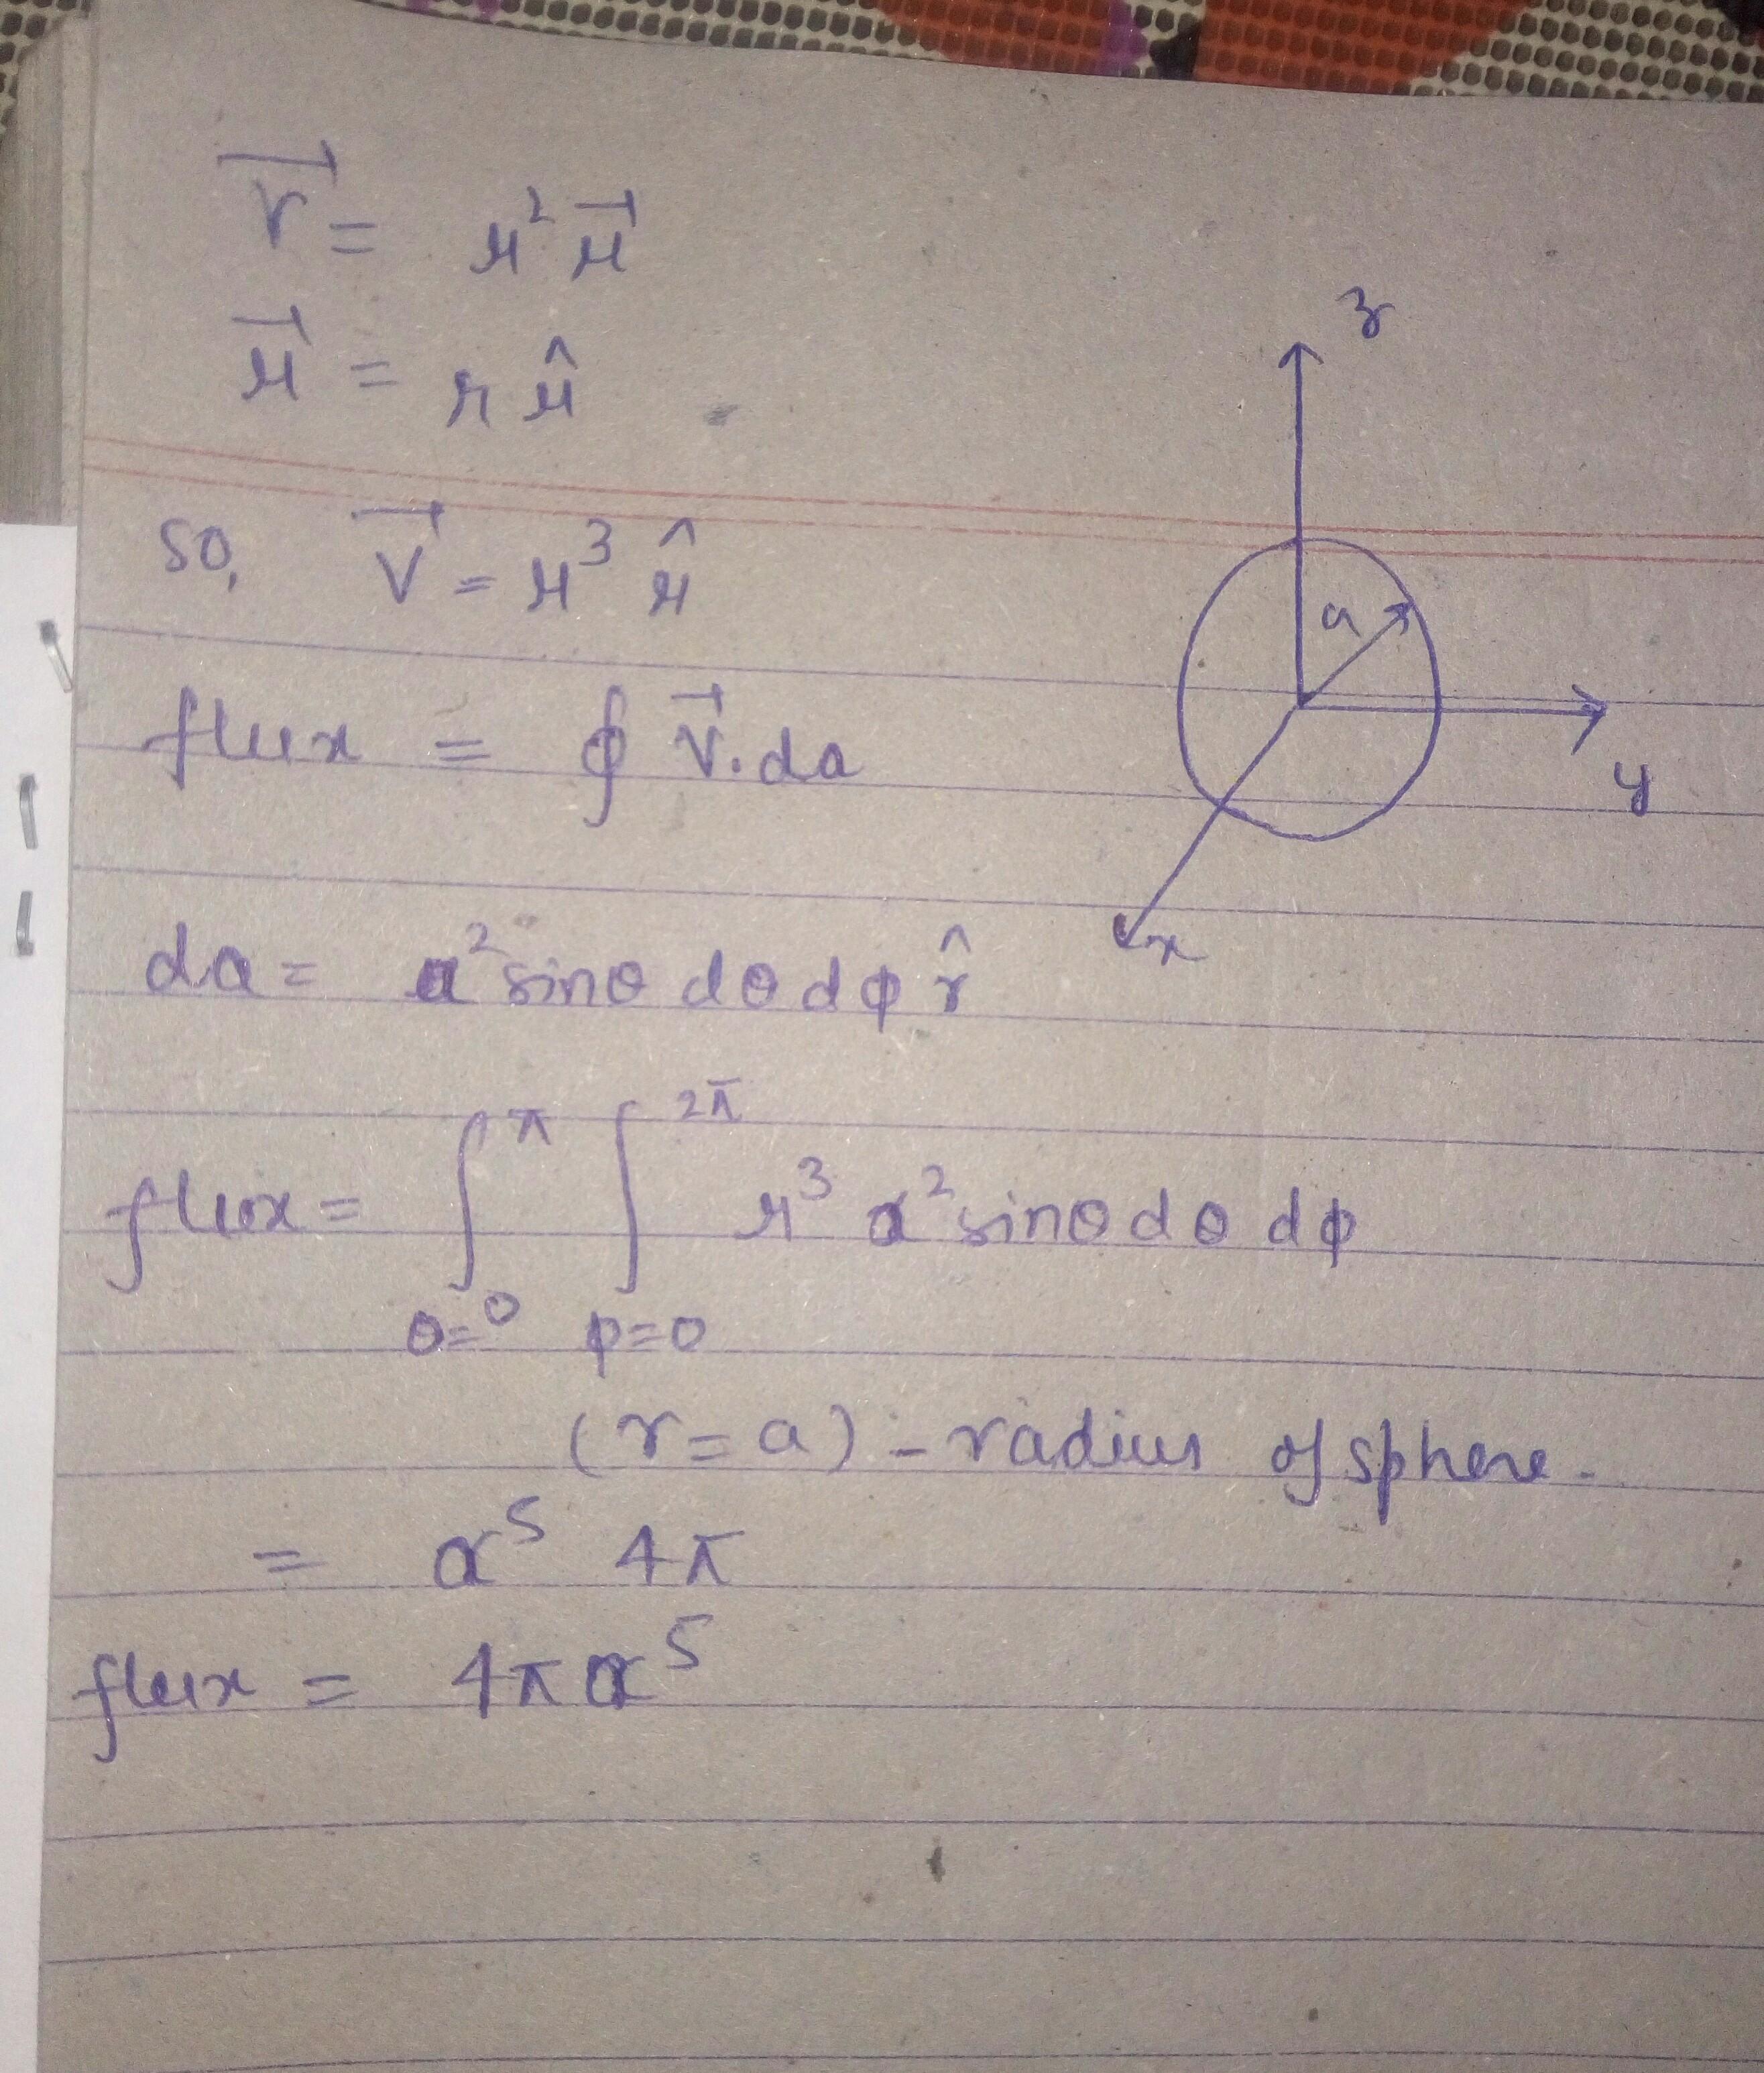 V⃗ = r² r⃗
r⃗ = r r̂
so, V⃗ = r³ r̂
flux = ∮ V⃗. da
da = a² sinθ dθ dφ r̂
flux = ∫_{θ=0}^{π} ∫_{φ=0}^{2π} r³ a² sinθ dθ dφ
(r = a) - radius of sphere.
= a⁵ 4π
flux = 4π a⁵
z
a
y
x